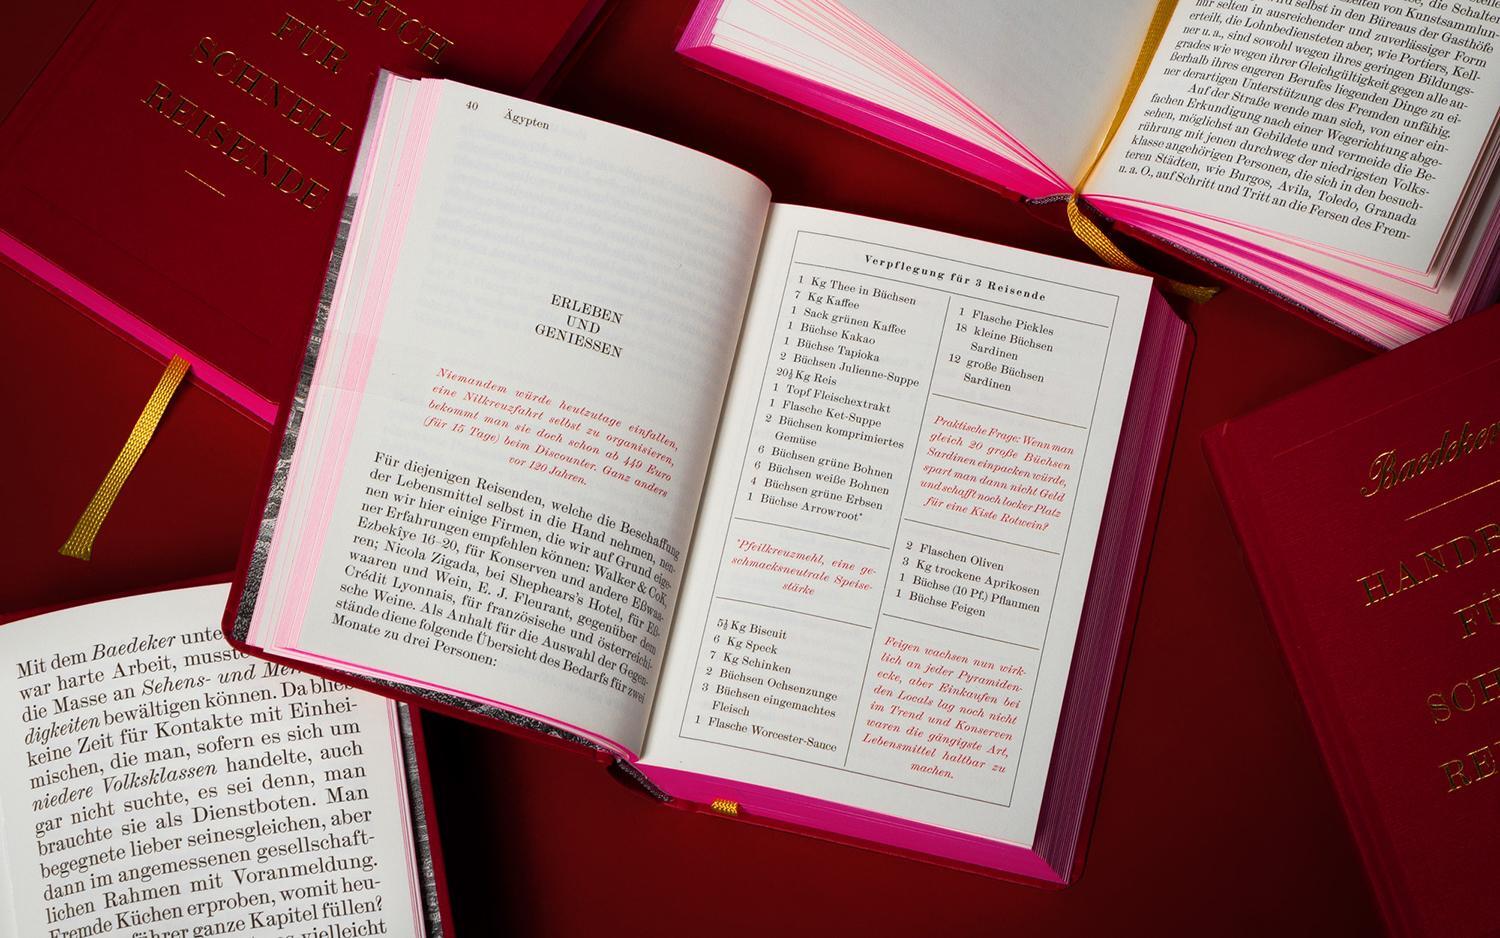 FÜR
SCHNELL
REISENDE
40
Ägypten
ERLEBEN
UND
GENIESSEN
Niemandem würde heutzutage einfallen,
eine Nilkreuzfahrt selbst zu organisieren,
bekommt man sie doch schon ab 449 Euro
(für 15 Tage) beim Discounter. Ganz anders
vor 120 Jahren.
Für diejenigen Reisenden, welche die Beschaffung
der Lebensmittel selbst in die Hand nehmen, nen-
nen wir hier einige Firmen, die wir auf Grund eige-
ner Erfahrungen empfehlen können: Walker & Cok,
Ezbekîye 16–20, für Konserven und andere Eßwa-
ren; Nicola Zigada, bei Shephears's Hotel, für Eß-
waaren und Wein, E. J. Fleurant, gegenüber dem
Crédit Lyonnais, für französische und österreichi-
sche Weine. Als Anhalt für die Auswahl der Gegen-
stände diene folgende Übersicht des Bedarfs für zwei
Monate zu drei Personen:
Verpflegung für 3 Reisende
1 Kg Thee in Büchsen
7 Kg Kaffee
1 Sack grünen Kaffee
1 Büchse Kakao
1 Büchse Tapioka
2 Büchsen Julienne-Suppe
20½ Kg Reis
1 Topf Fleischextrakt
1 Flasche Ket-Suppe
2 Büchsen komprimiertes
Gemüse
6 Büchsen grüne Bohnen
6 Büchsen weiße Bohnen
4 Büchsen grüne Erbsen
1 Büchse Arrowroot*
*Pfeilkreuzmehl, eine ge-
schmacksneutrale Speise-
stärke
5½ Kg Biscuit
6 Kg Speck
7 Kg Schinken
2 Büchsen Ochsenzunge
3 Büchsen eingemachtes
Fleisch
1 Flasche Worcester-Sauce
1 Flasche Pickles
18 kleine Büchsen
Sardinen
12 große Büchsen
Sardinen
Praktische Frage: Wenn man
gleich 20 große Büchsen
Sardinen einpacken würde,
spart man dann nicht Geld
und schafft noch locker Platz
für eine Kiste Rotwein?
2 Flaschen Oliven
3 Kg trockene Aprikosen
1 Büchse (10 Pf.) Pflaumen
1 Büchse Feigen
Feigen wachsen nun wirk-
lich an jeder Pyramiden-
ecke, aber Einkaufen bei
den Locals lag noch nicht
im Trend und Konserven
waren die gängigste Art,
Lebensmittel haltbar zu
machen.
selbst in den Büreaus der Gasthöfe
nur selten in ausreichender und zuverlässiger Form
erteilt, die Lohnbediensteten aber, wie Portiers, Kell-
ner u. a., sind sowohl wegen ihres geringen Bildungs-
grades wie wegen ihrer Gleichgültigkeit gegen alle au-
ßerhalb ihres engeren Berufes liegenden Dinge zu ei-
ner derartigen Unterstützung des Fremden unfähig.
Auf der Straße wende man sich, von einer ein-
fachen Erkundigung nach einer Wegerichtung abge-
sehen, möglichst an Gebildete und vermeide die Be-
rührung mit jenen durchweg der niedrigsten Volks-
klasse angehörigen Personen, die sich in den besuch-
teren Städten, wie Burgos, Avila, Toledo, Granada
u. a. O., auf Schritt und Tritt an die Fersen des Frem-
Mit dem Baedeker unte
war harte Arbeit, musste
die Masse an Sehens- und Mer
digkeiten bewältigen können. Da blieb
keine Zeit für Kontakte mit Einhei-
mischen, die man, sofern es sich um
niedere Volksklassen handelte, auch
gar nicht suchte, es sei denn, man
brauchte sie als Dienstboten. Man
begegnete lieber seinesgleichen, aber
dann im angemessenen gesellschaft-
lichen Rahmen mit Voranmeldung.
Fremde Küchen erproben, womit heu-
führer ganze Kapitel füllen?
vielleicht
Baedeker
HANDB
FÜ
SCH
RE